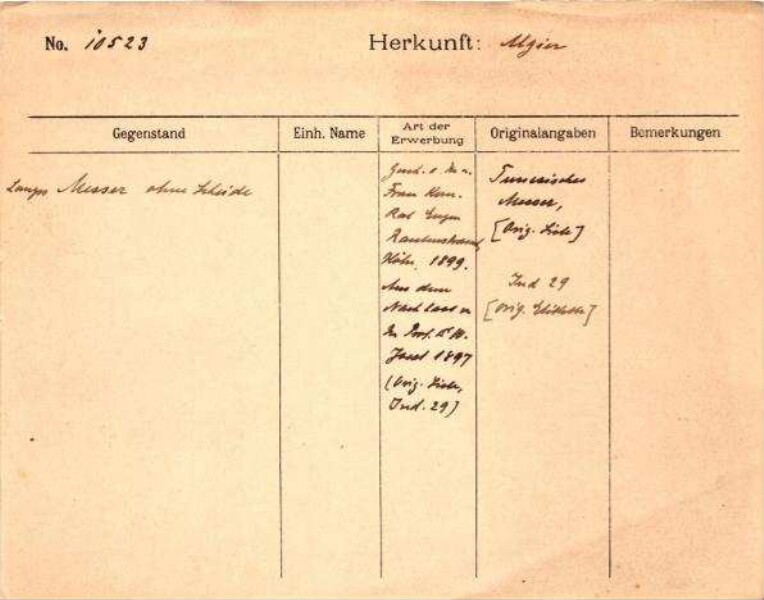 No. 10523
Herkunft: Algier
Gegenstand
Einh. Name
Art der Erwerbung
Originalangaben
Bemerkungen
Langes Messer ohne Scheide
Gesch. v.
Frau Kom.
Rat Eugen
Rautenstrauch,
Köln, 1899.
Aus dem
Nachlass v.
Prof. Dr. W.
Joest 1897
(Orig. Liste,
Ind. 29)
Tunesisches
Messer,
[Orig. Liste]
Ind 29
[Orig. Etikette]